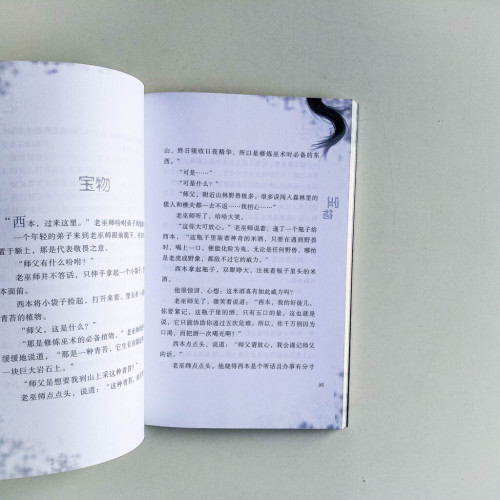 宝物
“西本，过来这里。”老巫师吩咐弟子
一个年轻的弟子来到老巫师跟前跪下，
置于额上，那是代表敬畏之意。
“师父有什么吩咐？”
老巫师并不答话，只伸手拿起一个小袋子，
本面前。
西本将小袋子捡起，打开来看，里头
青苔的植物。
“师父，这是什么？”
“那是修炼巫术的必备植物。”老巫师
缓缓地说道，“那是一种青苔，它生长在
一块巨大岩石上。”
“师父是想要我到山上采这种青苔？”
老巫师点点头，说道：“这种青苔，
山，终日吸收日我精华，所以是修炼巫术时必备的东
西。”
“可是……”
“可是什么？”
“师父，附近山林野兽极多，很多误闯入森林里的
猎人和樵夫都一去不返……我担心……”
老巫师听了，哈哈大笑。
“这你大可放心。”老巫师说着，递了一个瓶子给
西本，“这瓶子里装着神奇的米酒，只要在遇到野兽
时，喝上一口，便能化险为夷，无论是任何野兽，哪怕
是老虎或野象，都敌不过它的威力。”
西本拿起瓶子，双眼睁大，注视着瓶子里头的米
酒。
他很惊讶，心想：这米酒真有如此威力吗？
老巫师见了，微笑着说道：“西本，我的好徒儿，
你要紧记，这瓶子里的酒，只有五口的量。这也就是
说，它只能协助你通过五次危难。所以，你千万别因为
口渴，而把酒一次喝光啊！”
西本点点头，说道：“师父请放心，我会谨记师父
的话。”
老巫师点点头。他晓得西本是个听话且办事有分寸
宝物